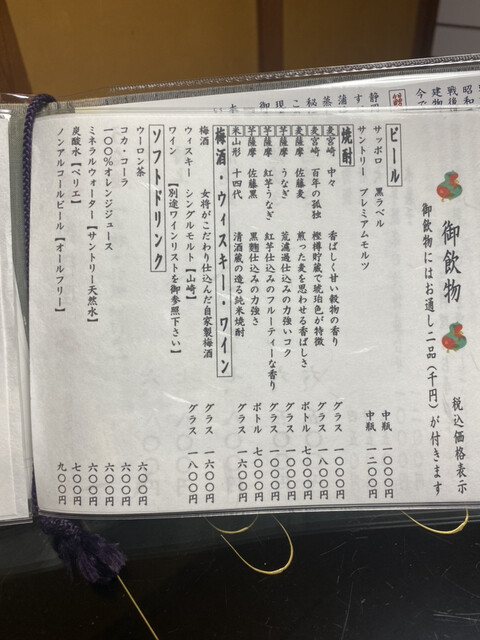 御飲物
税込価格表示
御飲物にはお通し二品（千円）が付きます
ビール
サッポロ 黒ラベル 中瓶 一〇〇〇円
サントリー プレミアムモルツ 中瓶 一二〇〇円
焼酎
麦 宮崎 中々 香ばしく甘い穀物の香り グラス 一〇〇〇円
麦 宮崎 百年の孤独 樫樽貯蔵で琥珀色が特徴 グラス 一八〇〇円
麦 薩摩 佐藤麦 煎った麦を思わせる香ばしさ ボトル 七〇〇〇円
芋 薩摩 うなぎ 荒濾過仕込みの力強いコク グラス 一〇〇〇円
芋 薩摩 紅芋うなぎ 紅芋仕込みのフルーティーな香り グラス 一〇〇〇円
芋 薩摩 佐藤黒 黒麹仕込みの力強さ ボトル 七〇〇〇円
米 山形 十四代 清酒蔵の造る純米焼酎 グラス 一六〇〇円
梅酒・ウィスキー・ワイン
梅酒 女将がこだわり仕込んだ自家製梅酒 グラス 一六〇〇円
ウィスキー シングルモルト【山崎】 グラス 一八〇〇円
ワイン 【別途ワインリストを御参照下さい】
ソフトドリンク
ウーロン茶 六〇〇円
コカ・コーラ 六〇〇円
１００％オレンジジュース 六〇〇円
ミネラルウォーター【サントリー天然水】 六〇〇円
炭酸水【ペリエ】 七〇〇円
ノンアルコールビール【オールフリー】 九〇〇円